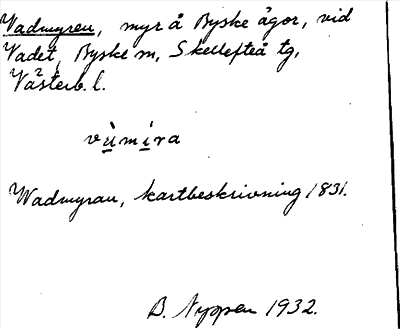 Vadmyren, myr å Byske ägor, vid
Vadet, Byske sn, Skellefteå tg,
Västerb. l.
vùmíra
Wadmyran, kartbeskrivning 1831.
B. Nyppen 1932.